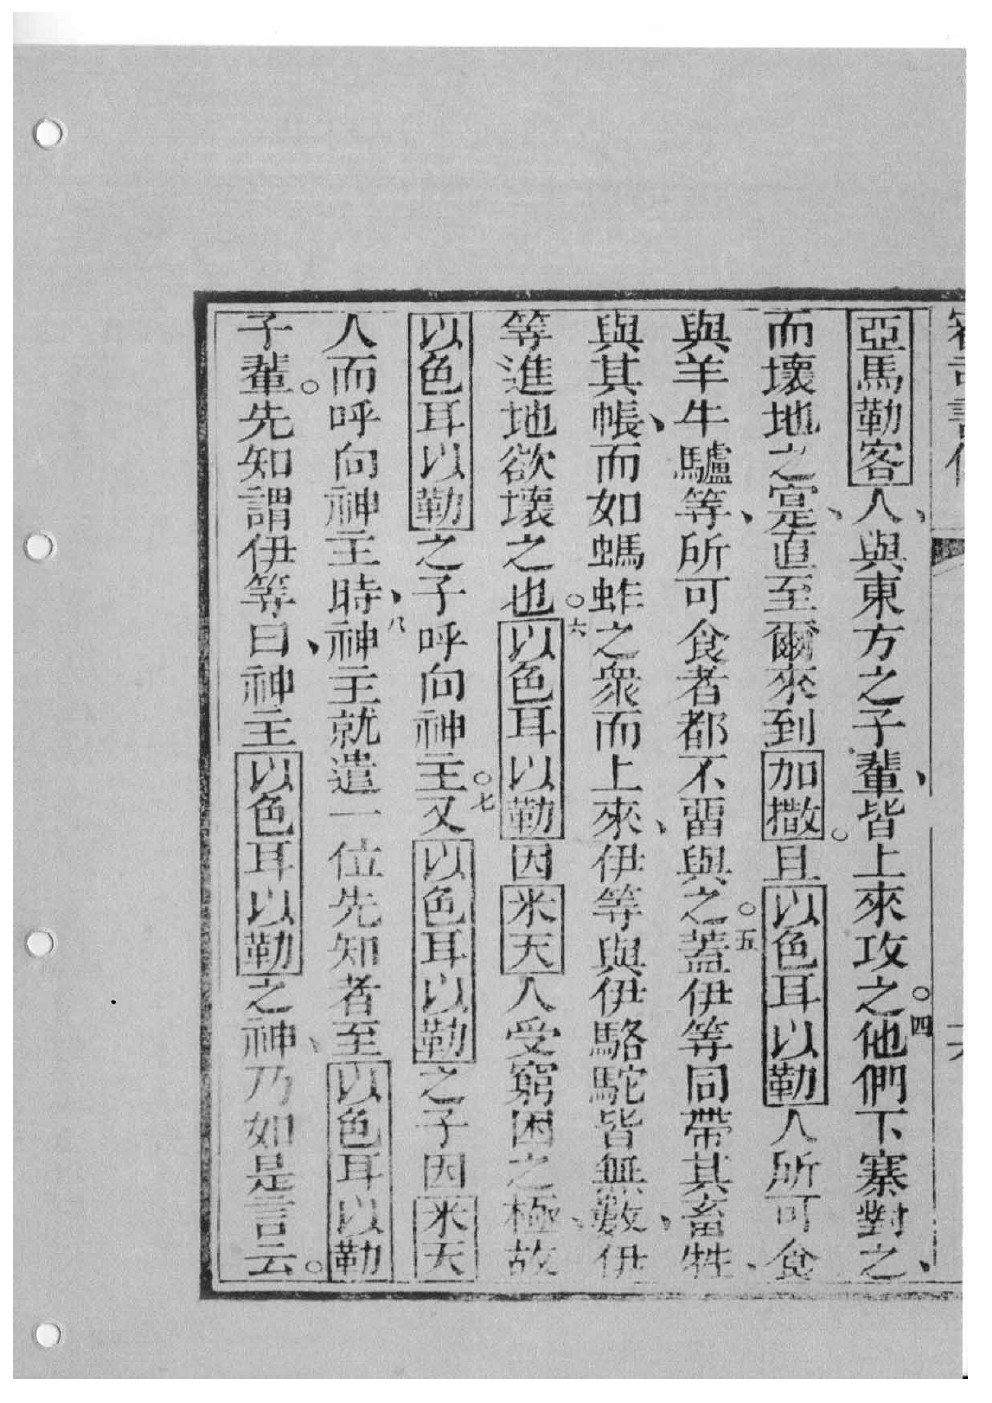 亞馬勒客人、與東方之子輩、皆上來攻之。四他們下寨對之、
而壞地之寔、直至爾來到加撒。且以色耳以勒人所可食
與羊牛驢等、所可食者都不畱與之。五蓋伊等同帶其畜牲、
與其帳、而如螞蚱之衆而上來、伊等與伊駱駝皆無數、伊
等進地欲壞之也。六以色耳以勒因米天人受窮困之極、故
以色耳以勒之子呼向神主。七又以色耳以勒之子因米天
人而呼向神主時、八神主就遣一位先知者至以色耳以勒
子輩。先知謂伊等曰、神主以色耳以勒之神、乃如是言云。